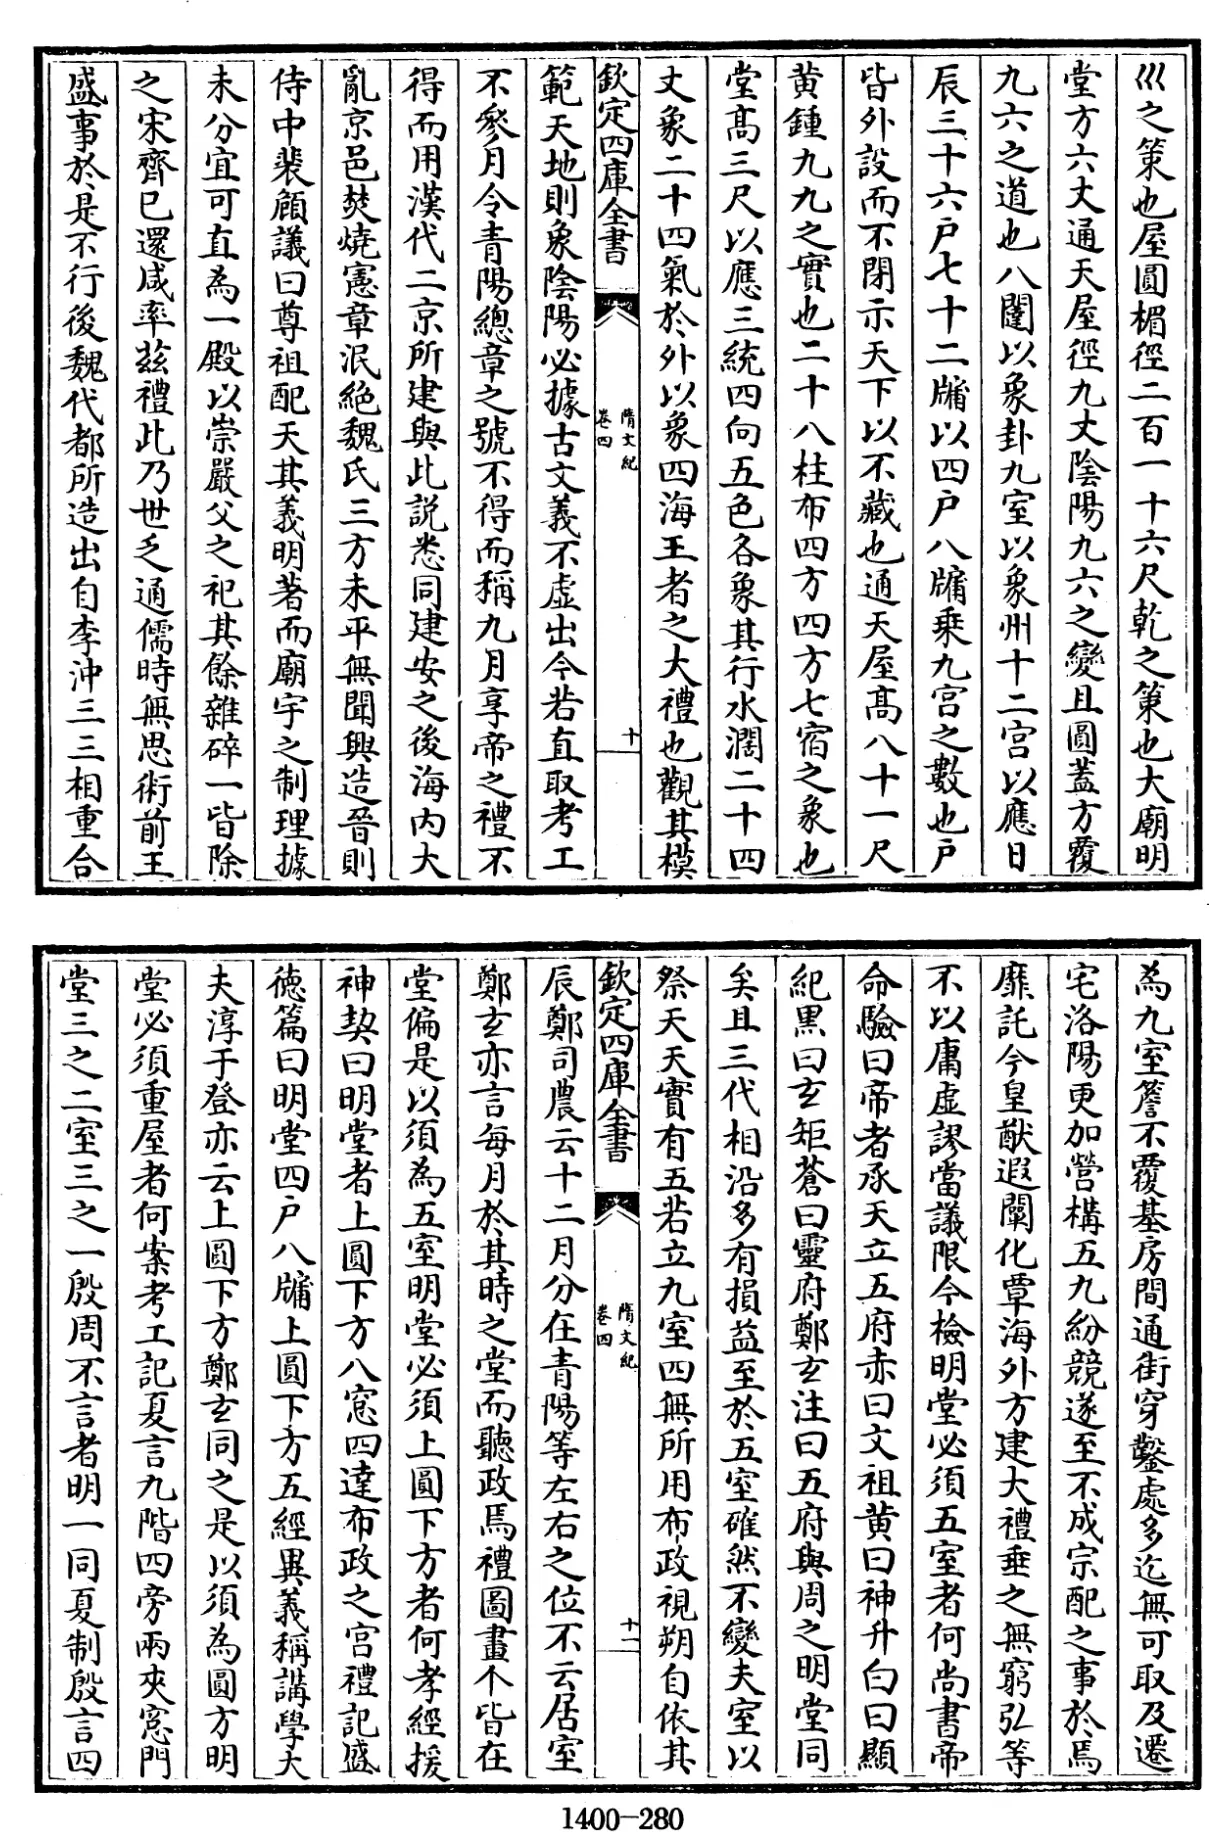 巛之策也屋圓楣徑二百一十六尺乾之策也大廟明
堂方六丈通天屋徑九丈陰陽九六之變且圓蓋方覆
九六之道也八闥以象卦九室以象州十二宮以應日
辰三十六戶七十二牖以四戶八牖乗九宮之數也戶
皆外設而不閉示天下以不藏也通天屋髙八十一尺
黄鍾九九之實也二十八柱布四方四方七宿之象也
堂髙三尺以應三統四向五色各象其行水濶二十四
丈象二十四氣於外以象四海王者之大禮也觀其模
欽定四庫全書
隋文紀
卷四
十
範天地則象陰陽必據古文義不虚出今若直取考工
不叅月令青陽總章之號不得而稱九月享帝之禮不
得而用漢代二京所建與此説悉同建安之後海内大
亂京邑焚燒憲章泯絶魏氏三方未平無聞興造晉則
侍中裴頠議曰尊祖配天其義明著而廟宇之制理據
未分宜可直為一殿以崇嚴父之祀其餘雜碎一皆除
之宋齊已還咸率兹禮此乃世乏通儒時無思術前王
盛事於是不行後魏代都所造出自李沖三三相重合
為九室簷不覆基房間通街穿鑿處多迄無可取及遷
宅洛陽更加營構五九紛競遂至不成宗配之事於焉
靡託今皇猷遐闡化覃海外方建大禮垂之無窮弘等
不以庸虚謬當議限今檢明堂必須五室者何尚書帝
命驗曰帝者承天立五府赤曰文祖黄曰神升白曰顯
紀黒曰玄矩蒼曰靈府鄭玄注曰五府與周之明堂同
矣且三代相沿多有損益至於五室確然不變夫室以
祭天天實有五若立九室四無所用布政視朔自依其
欽定四庫全書
隋文紀
卷四
十一
辰鄭司農云十二月分在青陽等左右之位不云居室
鄭玄亦言每月於其時之堂而聽政焉禮圖畫个皆在
堂偏是以須為五室明堂必須上圓下方者何孝經援
神契曰明堂者上圓下方八窓四達布政之宫禮記盛
徳篇曰明堂四戶八牖上圓下方五經異義稱講學大
夫淳于登亦云上圓下方鄭玄同之是以須為圓方明
堂必須重屋者何案考工記夏言九階四旁兩夾窓門
堂三之二室三之一殷周不言者明一同夏制殷言四
1400-280